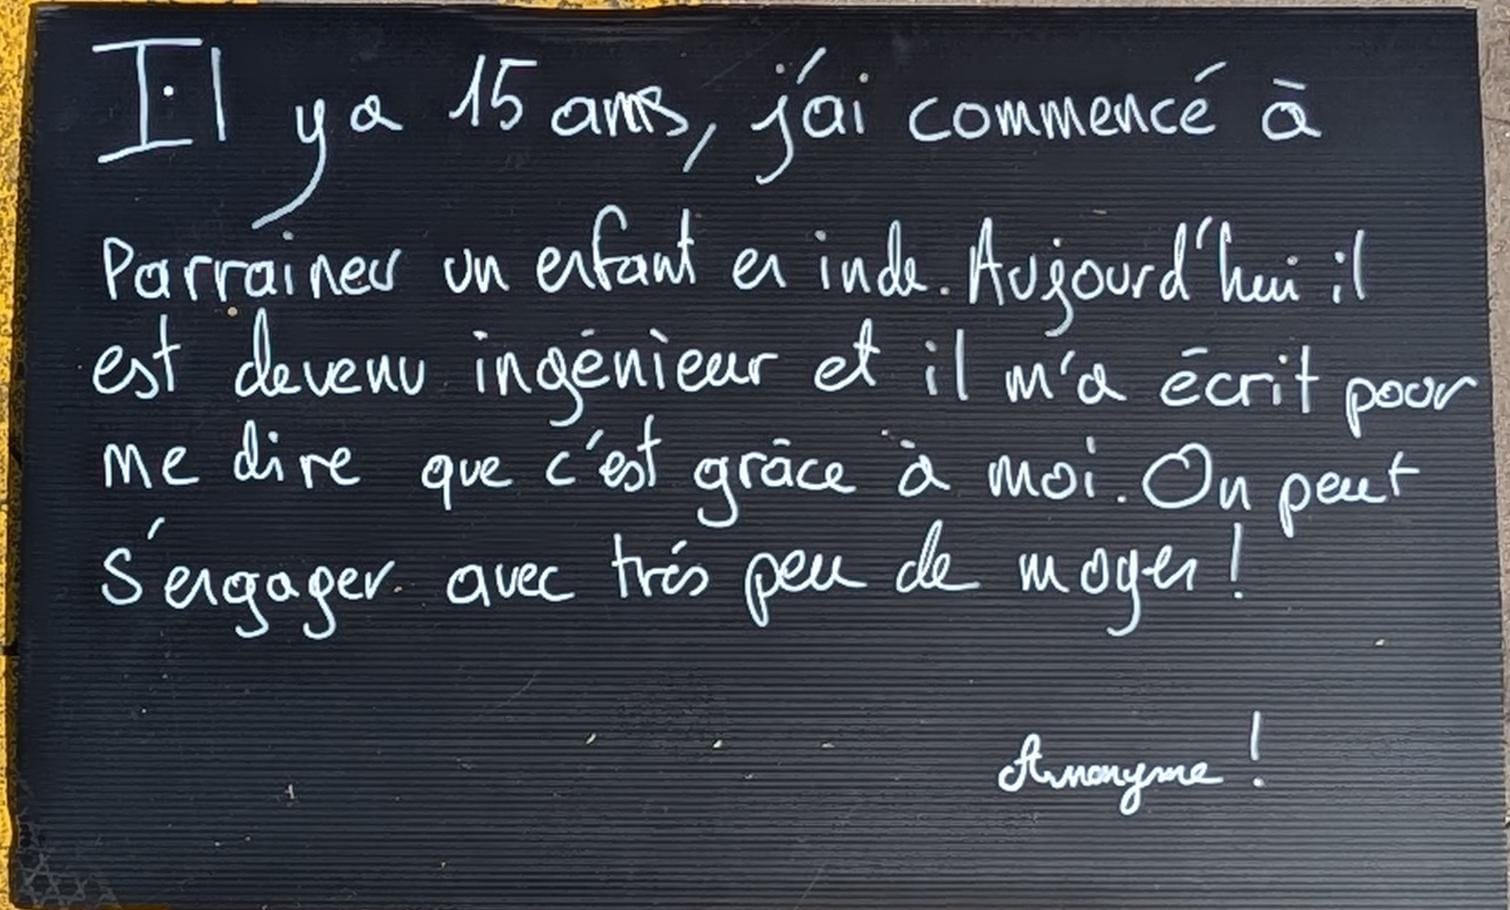 Il y a 15 ans, j'ai commencé à
Parrainer un enfant en inde. Aujourd'hui il
est devenu ingénieur et il m'a écrit pour
me dire que c'est grâce à moi. On peut
s'engager avec très peu de moyen !
Anonyme !